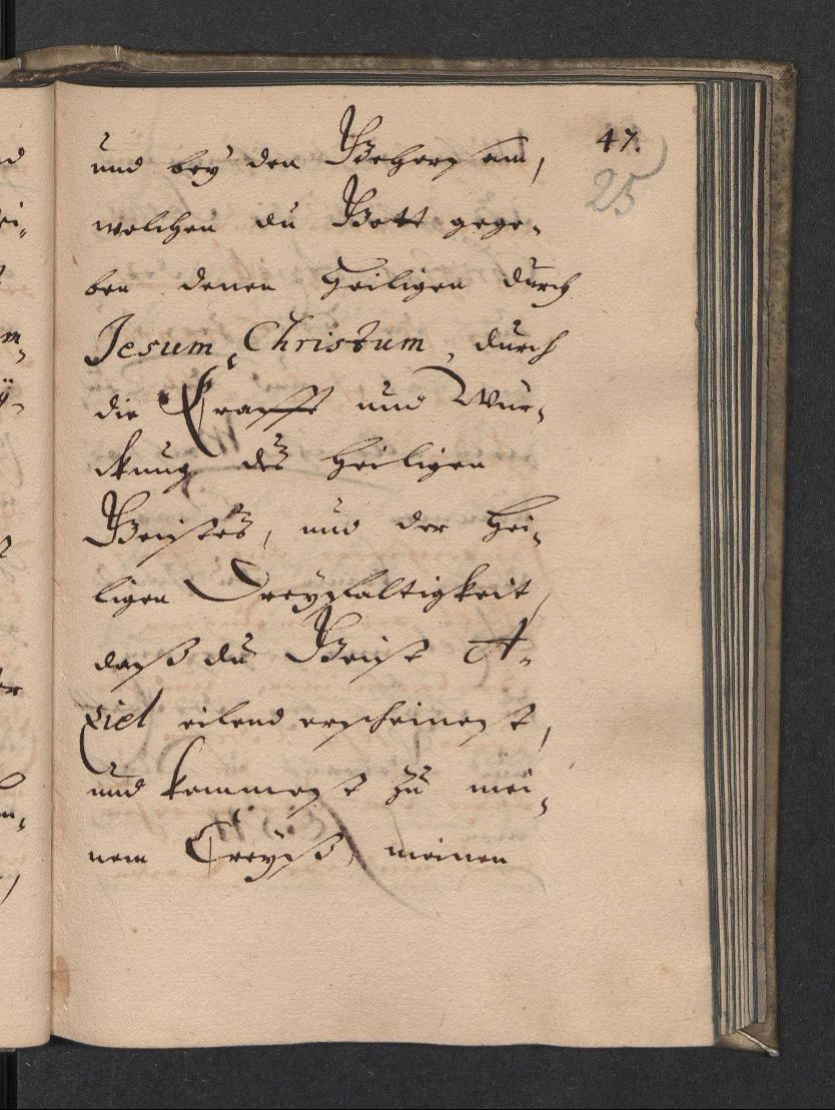 47.
25
und bey den Gehorsam,
welchen du Gott gege-
ben denen Heiligen durch
Jesum Christum, durch
die Krafft und Wür-
ckung des Heiligen
Geistes, und der Hei-
ligen Dreyfaltigkeit,
daß du Geist A-
ziel eilend erscheinest,
und kommest zu mei-
nem Creyß, meinen